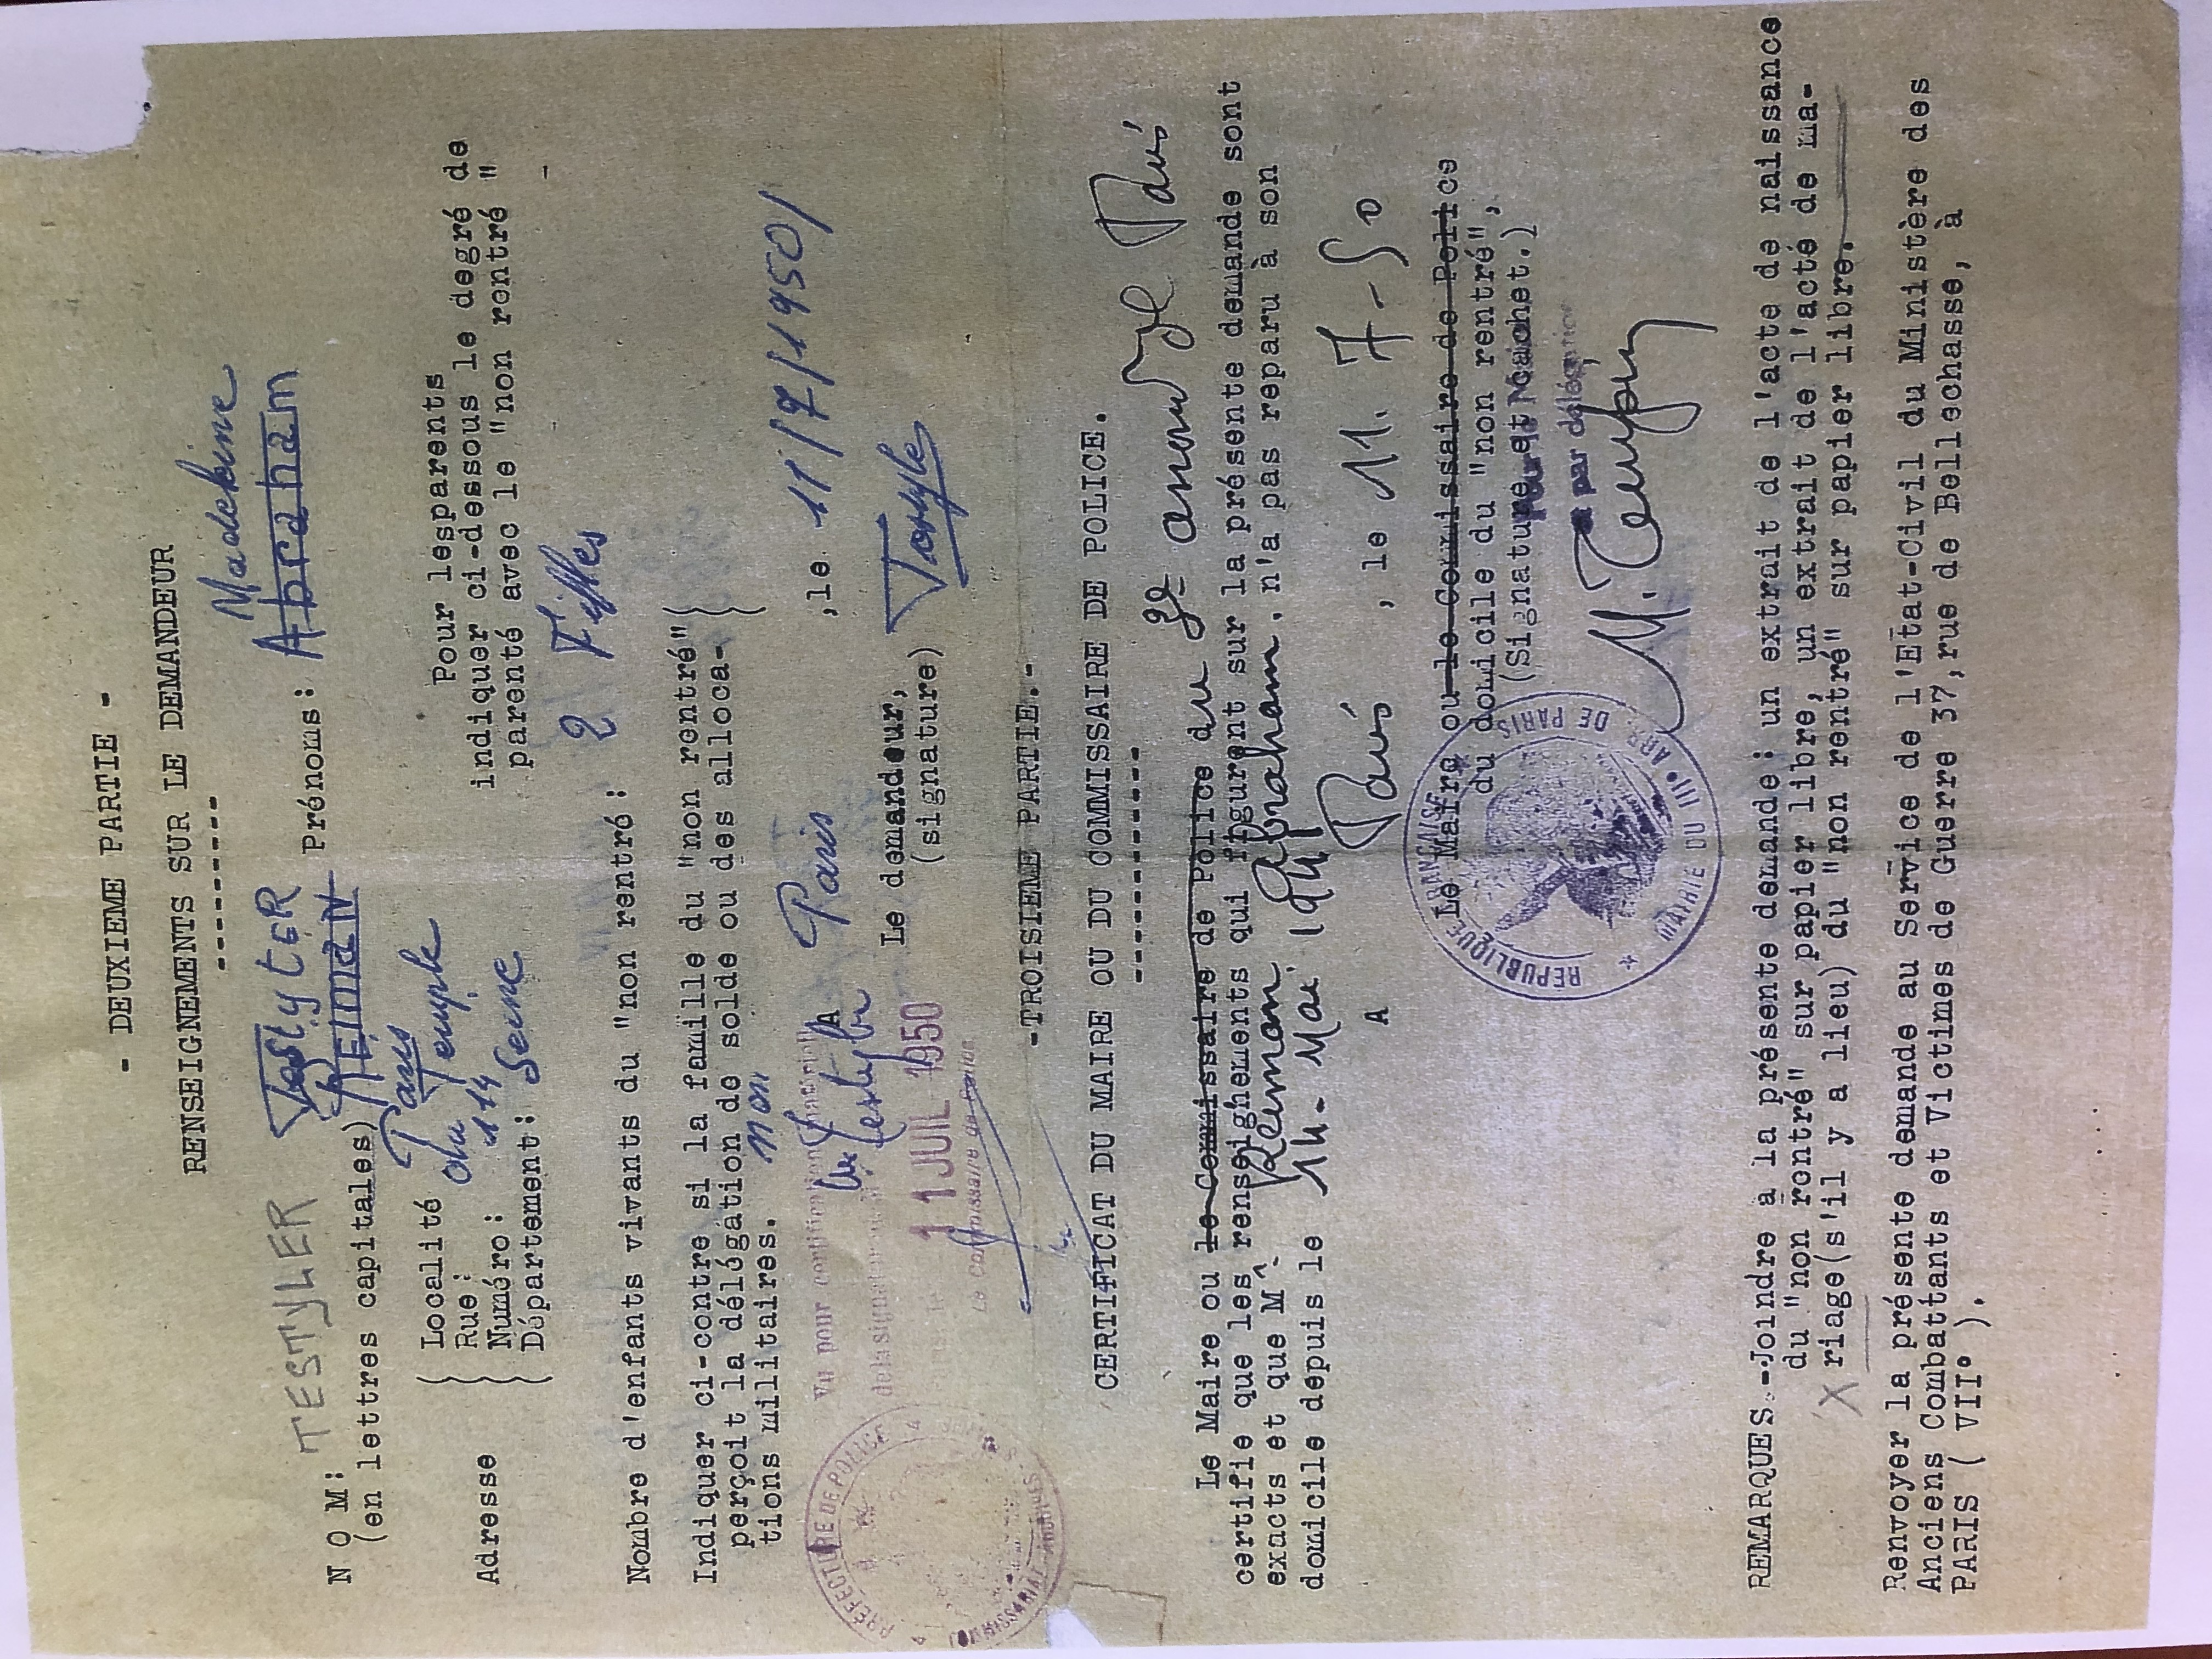 - DEUXIEME PARTIE -
RENSEIGNEMENTS SUR LE DEMANDEUR
---------
Madeleine
TESTYLER TestyLER
N O M: Prénoms: Abraham
(en lettres capitales) REimaN
Adresse
Localité Paris
Rue: du Temple
Numéro: 114
Département: Seine
Pour lesparents
indiquer ci-dessous le degré de
parenté avec le "non rentré "
Nombre d'enfants vivants du "non rentré : 2 Filles
Indiquer ci-contre si la famille du "non rentré"
perçoit la délégation de solde ou des alloca-
tions militaires. non
PRÉFECTURE DE POLICE
COMMISSARIAT
Vu pour certification matérielle
de la signature
A Paris ,le 11/7/1950/
Le demandeur,
(signature)
11 JUIL 1950
Le Commissaire de Police
-TROISIEME PARTIE.-
CERTIFICAT DU MAIRE OU DU COMMISSAIRE DE POLICE.
------------
Le Maire ou le Commissaire de Police du 3e arrond de Paris
certifie que les renseignements qui figurent sur la présente demande sont
exacts et que Mr. Reiman Abraham. n'a pas reparu à son
domicile depuis le 14. Mai 1941
A Paris , le 11. 7-50
Le Maire ou le Commissaire de Police
du domicile du "non rentré",
(Signature et cachet.)
Pour le Maire
et par délégation
RÉPUBLIQUE FRANÇAISE
MAIRIE DU IIIe ARR. DE PARIS
REMARQUES.-Joindre à la présente demande: un extrait de l'acte de naissance
du "non rentré" sur papier libre, un extrait de l'acté de ma-
X riage(s'il y a lieu) du "non rentré" sur papier libre.
Renvoyer la présente demande au Service de l'Etat-Civil du Ministère des
Anciens Combattants et Victimes de Guerre 37,rue de Bellechasse, à
PARIS ( VII° ).